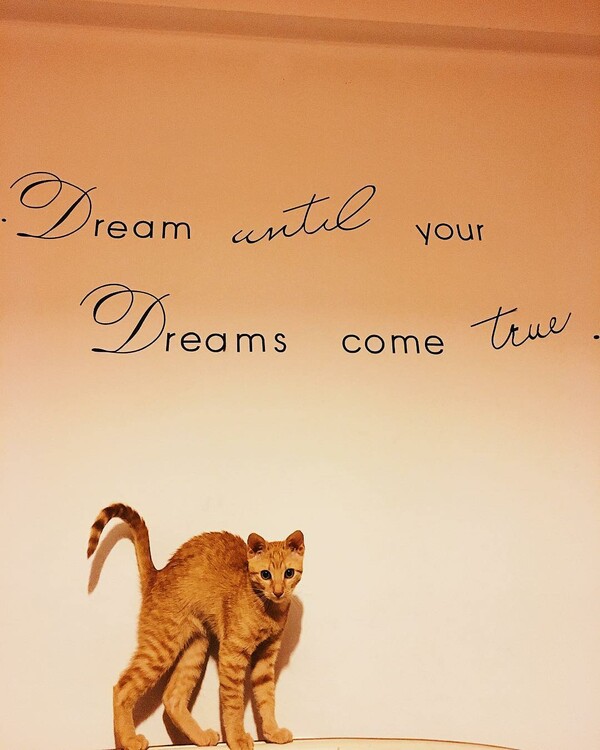 . Dream until your
Dreams come true .